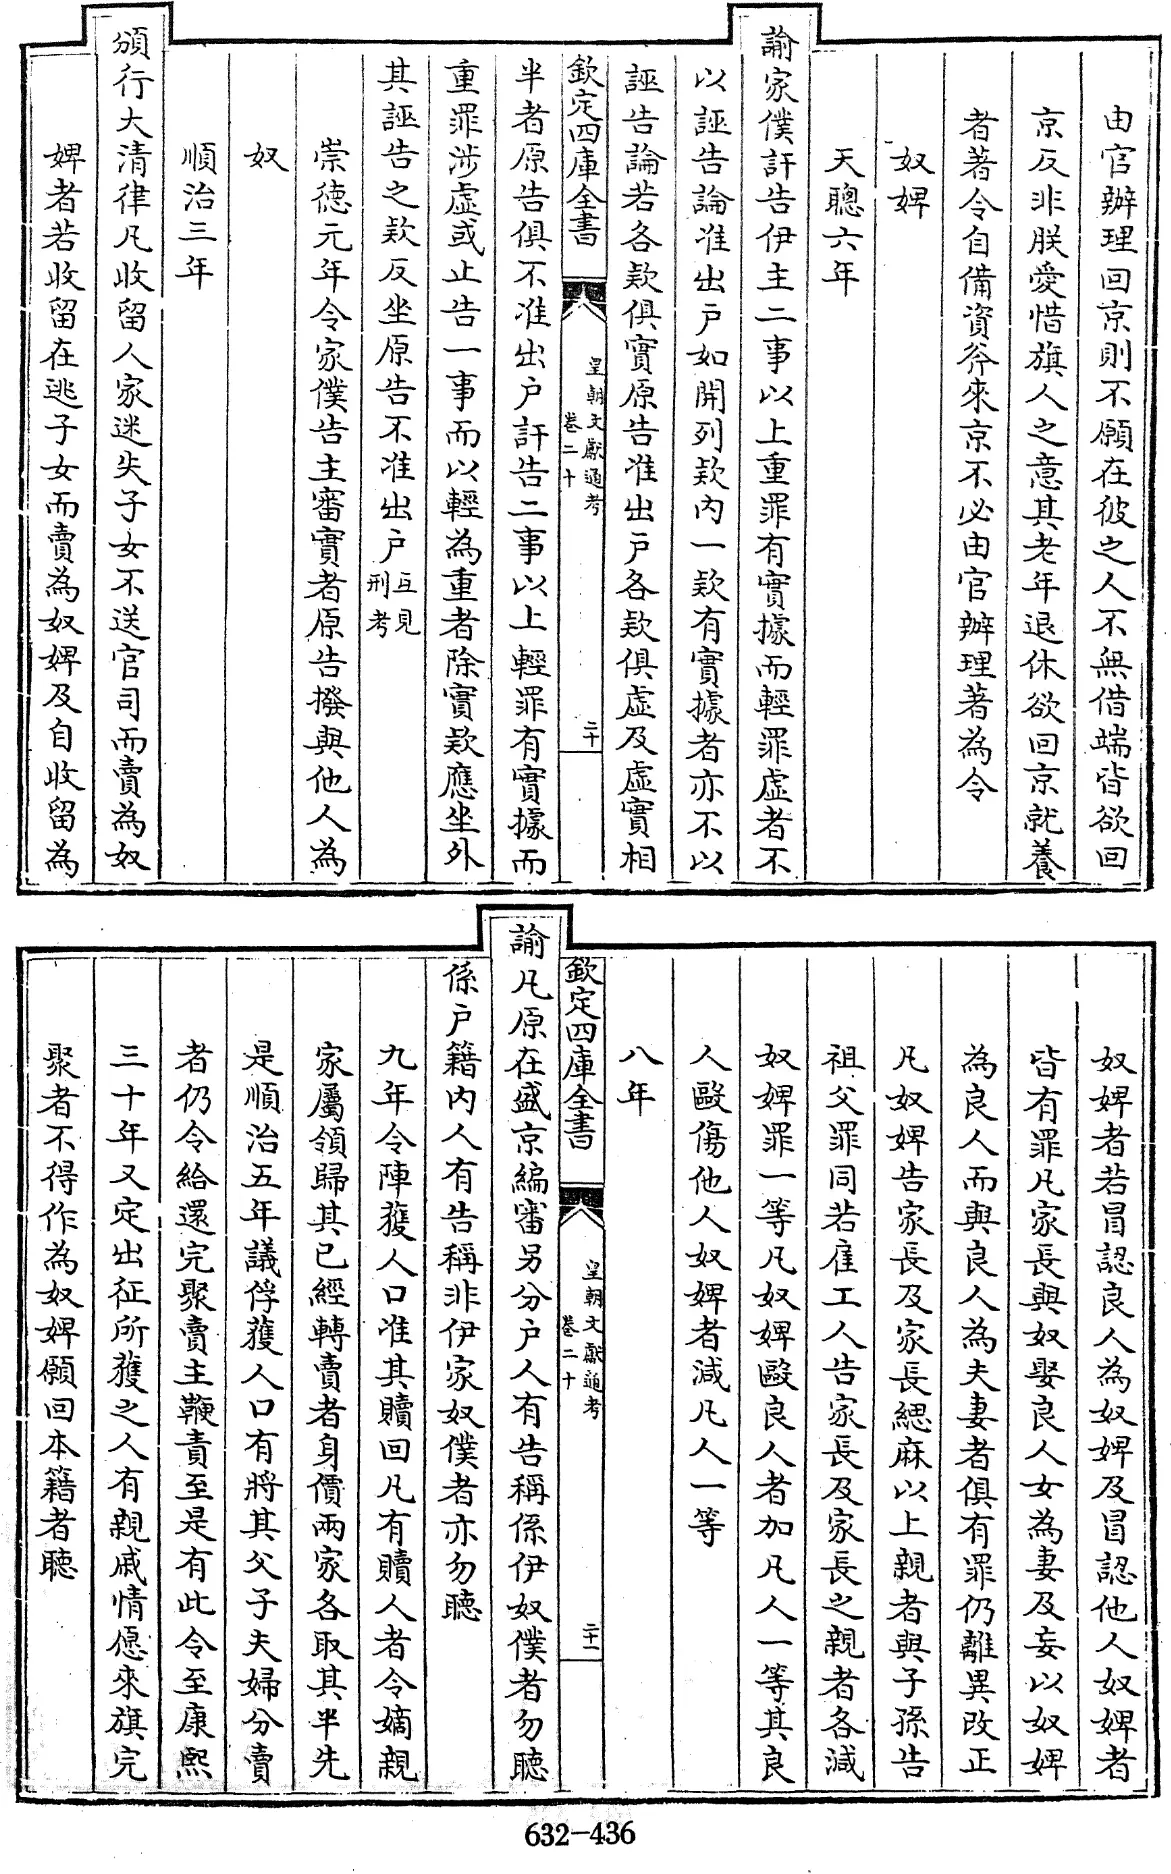 由官辦理回京則不願在彼之人不無借端皆欲回
京反非朕愛惜旗人之意其老年退休欲回京就養
者著令自備資斧來京不必由官辦理著為令
奴婢
天聰六年
諭家僕訐告伊主二事以上重罪有實據而輕罪虛者不
以誣告論准出户如開列款内一款有實據者亦不以
誣告論若各款俱實原告准出户各款俱虛及虛實相
欽定四庫全書
皇朝文獻通考
卷二十
二十
半者原告俱不准出户訐告二事以上輕罪有實據而
重罪涉虛或止告一事而以輕為重者除實款應坐外
其誣告之款反坐原告不准出户互見刑考
崇德元年令家僕告主審實者原告撥與他人為
奴
順治三年
頒行大清律凡收留人家迷失子女不送官司而賣為奴
婢者若收留在逃子女而賣為奴婢及自收留為
奴婢者若冒認良人為奴婢及冒認他人奴婢者
皆有罪凡家長與奴娶良人女為妻及妄以奴婢
為良人而與良人為夫妻者俱有罪仍離異改正
凡奴婢告家長及家長緦麻以上親者與子孫告
祖父罪同若雇工人告家長及家長之親者各減
奴婢罪一等凡奴婢毆良人者加凡人一等其良
人毆傷他人奴婢者減凡人一等
八年
欽定四庫全書
皇朝文獻通考
卷二十
二十一
諭凡原在盛京編審另分户人有告稱係伊奴僕者勿聽
係户籍内人有告稱非伊家奴僕者亦勿聽
九年令陣獲人口准其贖回凡有贖人者令嫡親
家屬領歸其已經轉賣者身價兩家各取其半先
是順治五年議俘獲人口有將其父子夫婦分賣
者仍令給還完聚賣主鞭責至是有此令至康熙
三十年又定出征所獲之人有親戚情愿來旗完
聚者不得作為奴婢願回本籍者聽
632-436